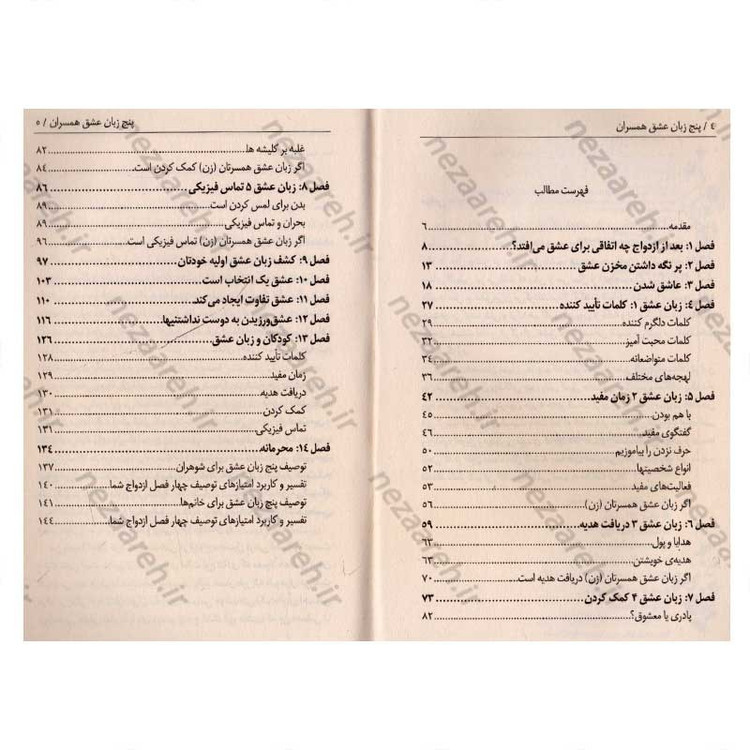 ٤ / پنج زبان عشق همسران
فهرست مطالب
مقدمه ۶
فصل ۱: بعد از ازدواج چه اتفاقی برای عشق می‌افتد؟ ۸
فصل ۲: پر نگه داشتن مخزن عشق ۱۳
فصل ۳: عاشق شدن ۱۸
فصل ۴: زبان عشق ۱: کلمات تأیید کننده ۲۷
کلمات دلگرم کننده ۲۹
کلمات محبت آمیز ۳۲
کلمات متواضعانه ۳۴
لهجه‌های مختلف ۳۶
فصل ۵: زبان عشق ۲ زمان مفید ۴۲
با هم بودن ۴۵
گفتگوی مفید ۴۶
حرف نزدن را بیاموزیم ۵۰
انواع شخصیتها ۵۲
فعالیت‌های مفید ۵۳
اگر زبان عشق همسرتان (زن) ۵۶
فصل ۶: زبان عشق ۳ دریافت هدیه ۵۹
هدایا و پول ۶۳
هدیه‌ی خویشتن ۶۳
اگر زبان عشق همسرتان (زن) دریافت هدیه است ۷۰
فصل ۷: زبان عشق ۴ کمک کردن ۷۳
پادری یا معشوق؟ ۸۲
پنج زبان عشق همسران / ۵
غلبه بر کلیشه ها ۸۲
اگر زبان عشق همسرتان (زن) کمک کردن است ۸۴
فصل ۸: زبان عشق ۵ تماس فیزیکی ۸۶
بدن برای لمس کردن است ۸۹
بحران و تماس فیزیکی ۸۹
اگر زبان عشق همسرتان (زن) تماس فیزیکی است ۹۶
فصل ۹: کشف زبان عشق اولیه خودتان ۹۷
فصل ۱۰: عشق یک انتخاب است ۱۰۳
فصل ۱۱: عشق تفاوت ایجاد می‌کند ۱۱۰
فصل ۱۲: عشق‌ورزیدن به دوست نداشتنیها ۱۱۶
فصل ۱۳: کودکان و زبان عشق ۱۲۶
کلمات تأیید کننده ۱۲۸
زمان مفید ۱۲۹
دریافت هدیه ۱۳۰
کمک کردن ۱۳۱
تماس فیزیکی ۱۳۱
فصل ۱۴: محرمانه ۱۳۴
توصیف پنج زبان عشق برای شوهران ۱۳۷
تفسیر و کاربرد امتیازهای توصیف چهار فصل ازدواج شما ۱۴۰
توصیف پنج زبان عشق برای خانم‌ها ۱۴۱
تفسیر و کاربرد امتیازهای توصیف چهار فصل ازدواج شما ۱۴۴
nezaareh.ir